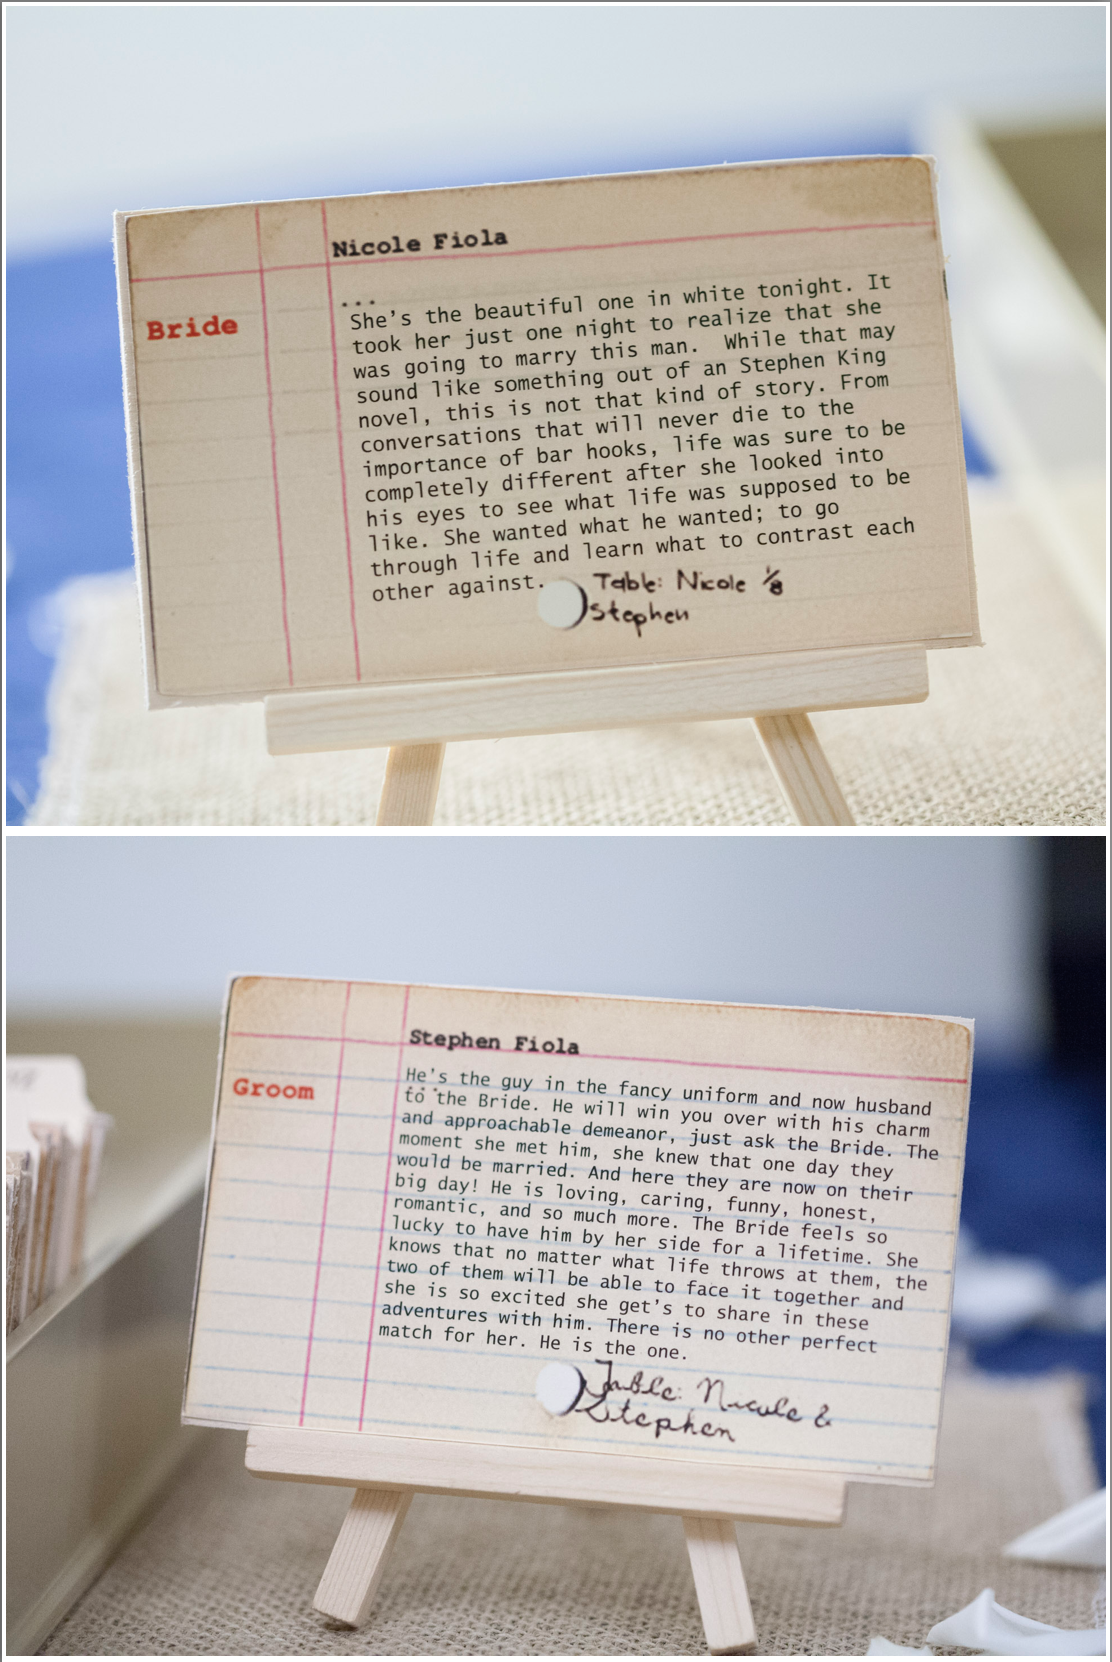 Nicole Fiola
...
Bride
She's the beautiful one in white tonight. It
took her just one night to realize that she
was going to marry this man. While that may
sound like something out of an Stephen King
novel, this is not that kind of story. From
conversations that will never die to the
importance of bar hooks, life was sure to be
completely different after she looked into
his eyes to see what life was supposed to be
like. She wanted what he wanted; to go
through life and learn what to contrast each
other against.
Table: Nicole &
Stephen
Stephen Fiola
...
Groom
He's the guy in the fancy uniform and now husband
to the Bride. He will win you over with his charm
and approachable demeanor, just ask the Bride. The
moment she met him, she knew that one day they
would be married. And here they are now on their
big day! He is loving, caring, funny, honest,
romantic, and so much more. The Bride feels so
lucky to have him by her side for a lifetime. She
knows that no matter what life throws at them, the
two of them will be able to face it together and
she is so excited she get's to share in these
adventures with him. There is no other perfect
match for her. He is the one.
Table: Nicole &
Stephen